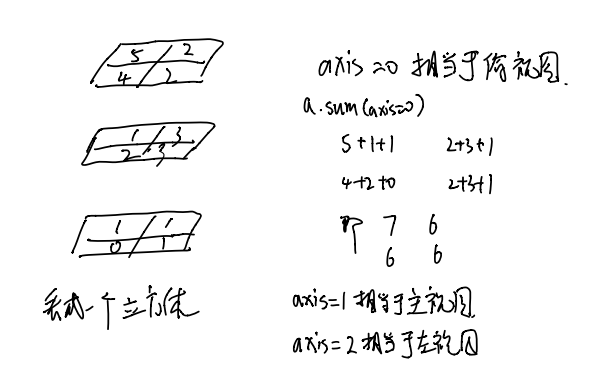 5 2
4 2
1 3
2 3
1 1
0 1
看成一个立方体
axis=0 相当于俯视图.
a.sum(axis=0)
5+1+1 2+3+1
4+2+0 2+3+1
即 7 6
6 6
axis=1 相当于主视图
axis=2 相当于左视图